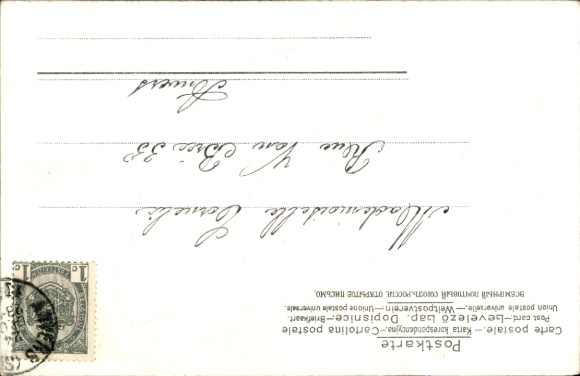 Postkarte
Carte postale.—Karta korespondencyjna—Cartolina postale
Post card—Levelező Lap. Dopisnice—Briefkaart.
Union postale universelle.—Weltpostverein—Unione postale universale
ВСЕМІРНЫЙ ПОЧТОВЫЙ СОЮЗЪ.РОССІЯ. ОТКРЫТОЕ ПИСЬМО.
Mademoiselle Cornelis
Rue Van Brée 33
Anvers
1c 1c